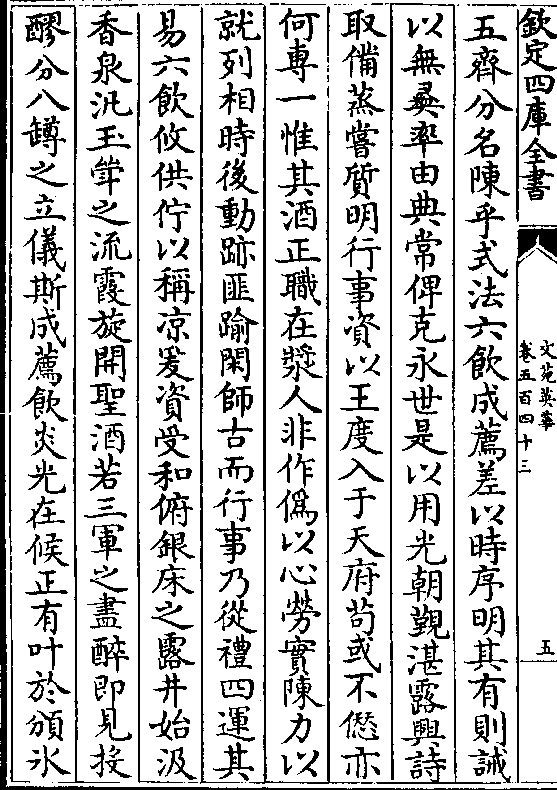 欽定四庫全書
文苑英華
卷五百四十三
五
五齊分名陳乎式法六飲成薦差以時序明其有則誡
以無彛率由典常俾克永世是以用光朝覲湛露興詩
取備蒸嘗質明行事資以王度入于天府苟或不愆亦
何専一惟其酒正職在漿人非作僞以心勞實陳力以
就列相時後動跡匪踰閑師古而行事乃從禮四運其
易六飲攸供佇以稱凉爰資受和俯銀床之露井始汲
香泉汎玉斝之流霞旋開聖酒若三軍之盡醉即見投
醪分八罇之立儀斯成薦飲炎光在候正有叶於頒氷